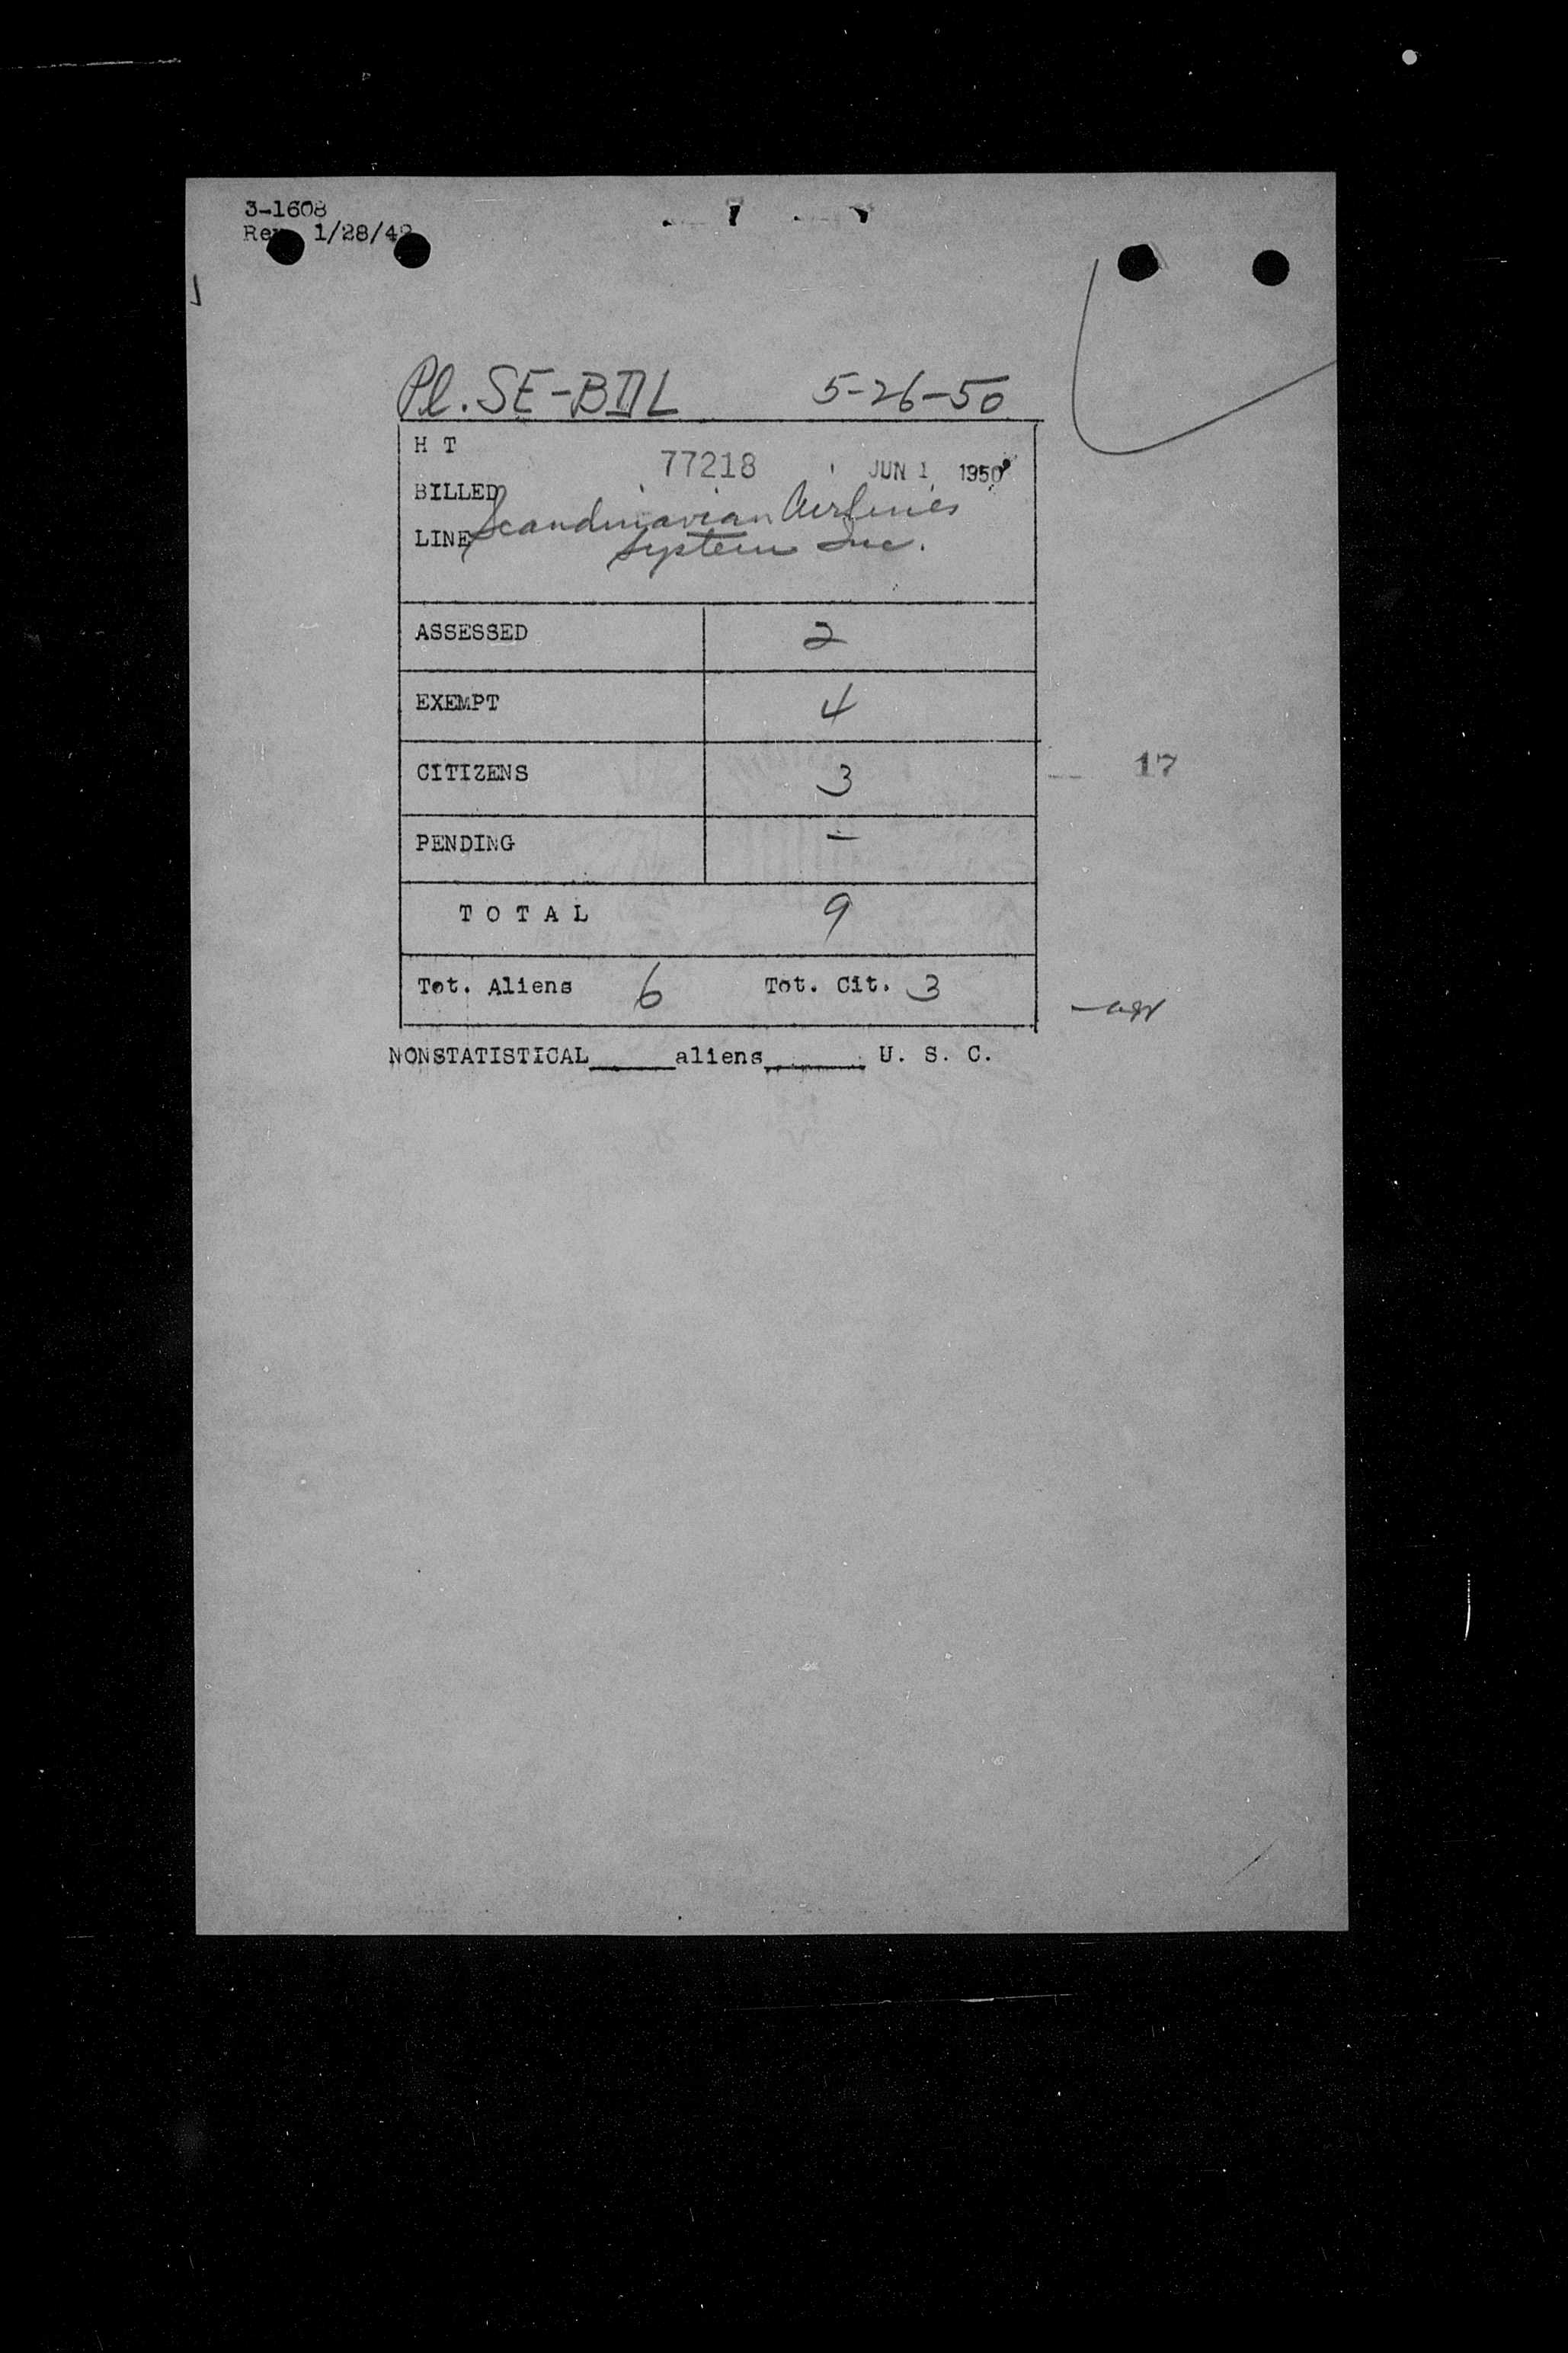 3-1608
Rev. 1/28/49
Pl. SE-BDL 5-26-50
H T
77218 JUN 1 1950
BILLED
LINE Scandinavian Airlines
System Inc.
ASSESSED 2
EXEMPT 4
CITIZENS 3
17
PENDING –
T O T A L 9
Tot. Aliens 6 Tot. Cit. 3
NONSTATISTICAL_____aliens______ U. S. C.